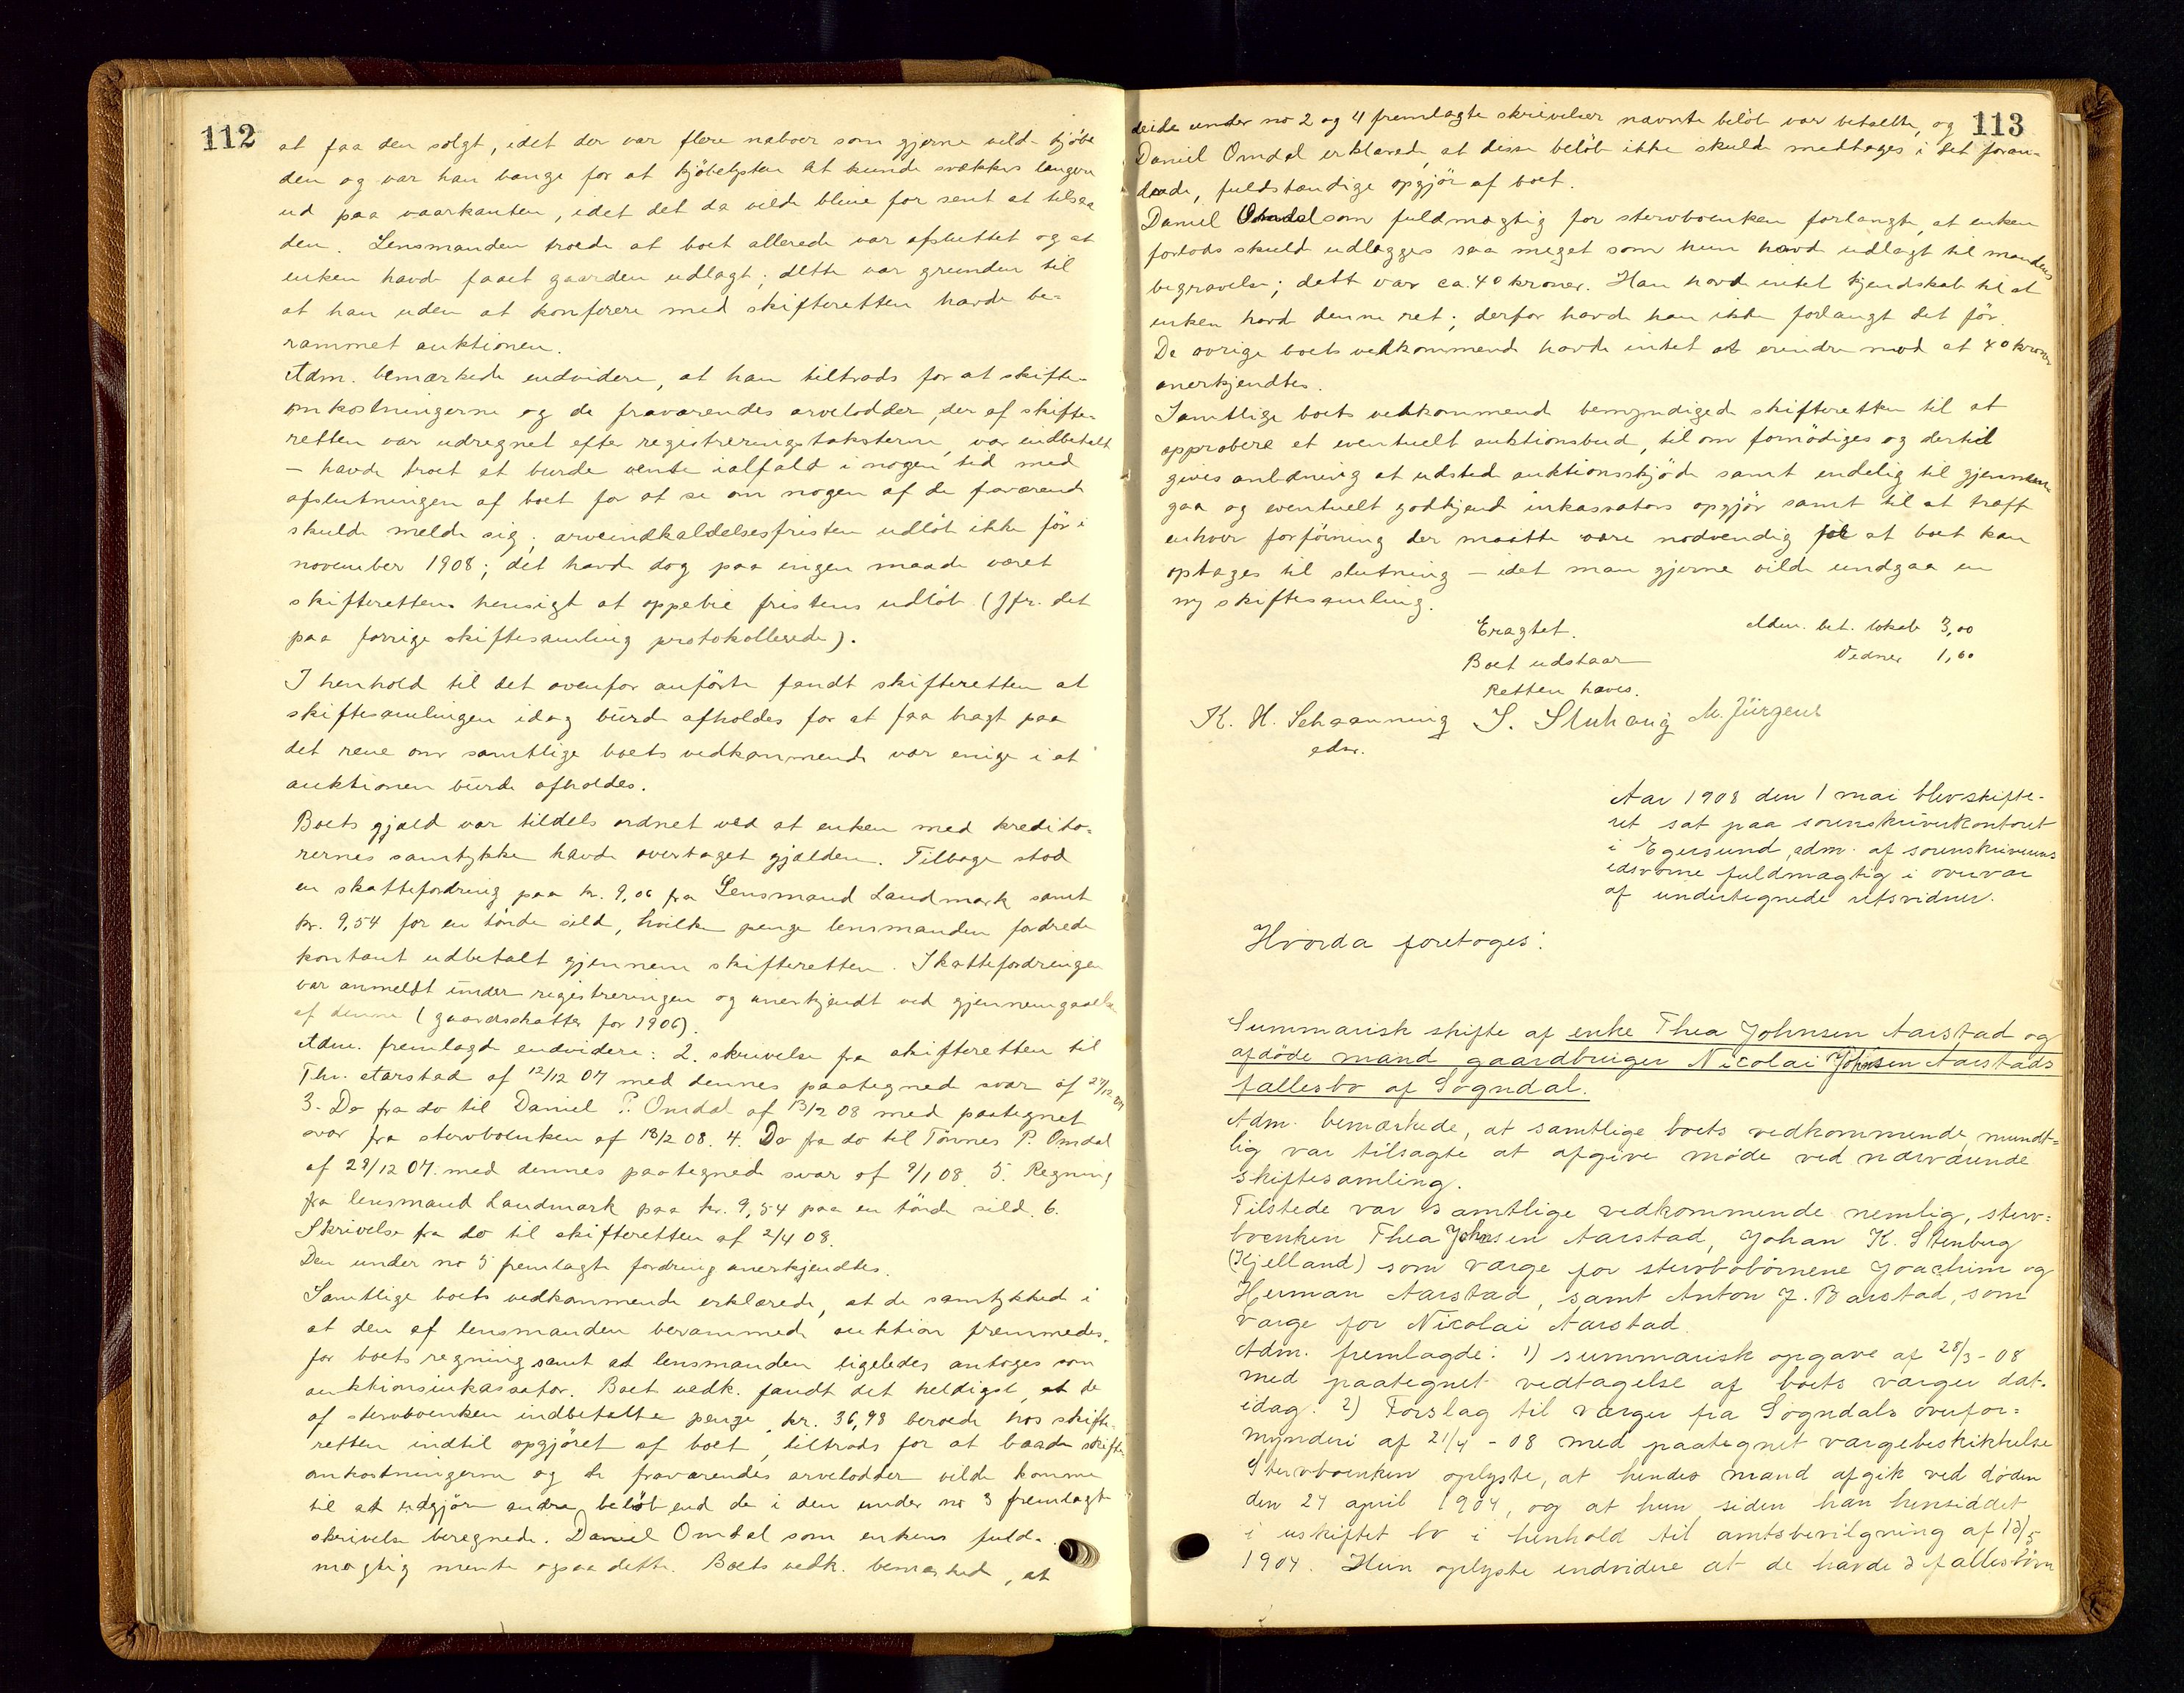 112
at faa den solgt, idet der var flere naboer som gjerne vilde kjøbe
den og var han bange for at kjøbelysten at kunde svækkes længere
ud paa vaarkanten, idet det da vilde blive for sent at tilsaa
den. Lensmanden troede at boet allerede var afsluttet og at
enken havde faaet gaarden udlagt; dette var grunden til
at han uden at konferere med skifteretten havde be-
rammet auktionen.
Adm. bemærkede endvidere, at han tiltrods for at skifte-
omkostningerne og de fraværendes arvelodder, der af skifte-
retten var udregnet efter registreringstaksterne, var indbetalt
– havde troet at burde vente ialfald i nogen tid med
afslutningen af boet for at se om nogen af de fraværende
skulde melde sig; arveindkaldelsesfristen udløb ikke før i
november 1908; det havde dog paa ingen maade været
skifterettens hensigt at oppebie fristens udløb (Jfr. det
paa forrige skiftesamling protokollerede).
I henhold til det ovenfor anførte fandt skifteretten at
skiftesamlingen idag burde afholdes for at faa bragt paa
det rene om samtlige boets vedkommende var enige i at
auktionen burde afholdes.
Boets gjæld var tildels ordnet ved at enken med kredito-
rernes samtykke havde overtaget gjælden. Tilbage stod
en skattefordring paa kr. 9,06 fra Lensmand Landmark samt
kr. 9,54 for en tønde sild, hvilke penge lensmanden fordrede
kontant udbetalt gjennem skifteretten. Skattefordringen
var anmeldt under registreringen og anerkjendt ved gjennemgaaelse
af denne (gaardsskatter for 1906).
Adm. fremlagde endvidere: 2. skrivelse fra skifteretten til
Thr. Aarstad af 12/12 07 med dennes paategnede svar af 27/12 07
3. Do fra do til Daniel P. Omdal af 13/2 08 med paategnet
svar fra stervboenken af 18/2 08. 4. Do fra do til Tønnes P. Omdal
af 28/12 07 med dennes paategnede svar af 9/1 08. 5. Regning
fra lensmand Landmark paa kr. 9,54 paa en tønde sild. 6.
Skrivelse fra do til skifteretten af 2/4 08.
Den under no 5 fremlagte fordring anerkjendtes.
Samtlige boets vedkommende erklærede, at de samtykkede i
at den af lensmanden berammede auktion fremmedes
for boets regning samt at lensmanden ligeledes antoges som
auktionsinkassator. Boets vedk. fandt det heldigst, at de
af stervboenken indbetalte penge kr. 36,98 beroede hos skifte-
retten indtil opgjøret af boet, tiltrods for at baade skifte-
omkostningerne og de fraværendes arvelodder vilde komme
til at udgjøre andre beløb end de i den under no 3 fremlagte
skrivelse beregnede. Daniel Omdal som enkens fuld-
mægtig mente ogsaa dette. Boets vedk. bemærkede, at
113
de i de under no 2 og 4 fremlagte skrivelser nævnte beløb var betalte, og
Daniel Omdal erklærede, at disse beløb ikke skulde medtages i det foran-
stående, fuldstændige opgjør af boet.
Daniel Omdal som fuldmægtig for stervboenken forlangte, at enken
forlods skulde udlægges saa meget som hun havde udlagt til mandens
begravelse; dette var ca. 40 kroner. Han havde intet kjendskab til at
enken havde denne ret; derfor havde han ikke forlangt det før.
De øvrige boets vedkommende havde intet at erindre mod at 40 kroner
anerkjendtes.
Samtlige boets vedkommende bemyndigede skifteretten til at
approbere et eventuelt auktionsbud, til om fornødiges og dertil
gives anledning at udstede auktionsskjøde samt endelig til gjennem-
gaa og eventuelt godkjende inkassators opgjør samt til at træffe
enhver forføining der maatte være nødvendig for at boet kan
optages til slutning – idet man gjerne vilde undgaa en
ny skiftesamling.
Eragtet. Adm. bet. lokale 3,00
Boet udstaar Vidner 1,60
Retten hæves.
K. H. Schaanning S. Stuhaug M. Jürgens
edsv.
Aar 1908 den 1 mai blev skifte-
ret sat paa sorenskriverkontoret
i Egersund, adm. af sorenskriverens
edsvorne fuldmægtig i overvær
af undertegnede retsvidner.
Hvorda foretoges:
Summarisk skifte af enke Thea Johnsen Aarstad og
afdøde mand gaardbruger Nicolai Johnsen Aarstads
fællesbo af Sogndal.
Adm. bemærkede, at samtlige boets vedkommende mundt-
lig var tilsagte at afgive møde ved nærværende
skiftesamling.
Tilstede var samtlige vedkommende nemlig, sterv-
boenken Thea Johnsen Aarstad, Johan K. Stenberg
(Kjelland) som værge for stervbobørnene Joachim og
Herman Aarstad, samt Anton J. Barstad, som
værge for Nicolai Aarstad.
Adm. fremlagde: 1) summarisk opgave af 28/3 - 08
med paategnet vedtagelse af boets værger dat.
idag. 2) Forslag til værger fra Sogndals overfor-
mynderi af 21/4 - 08 med paategnet værgebeskikkelse
Stervboenken oplyste, at hendes mand afgik ved døden
den 24 april 1904, og at hun siden han hensiddet
i uskiftet bo i henhold til amtsbevilgning af 13/5
1904. Hun oplyste endvidere at de havde 3 fællesbørn